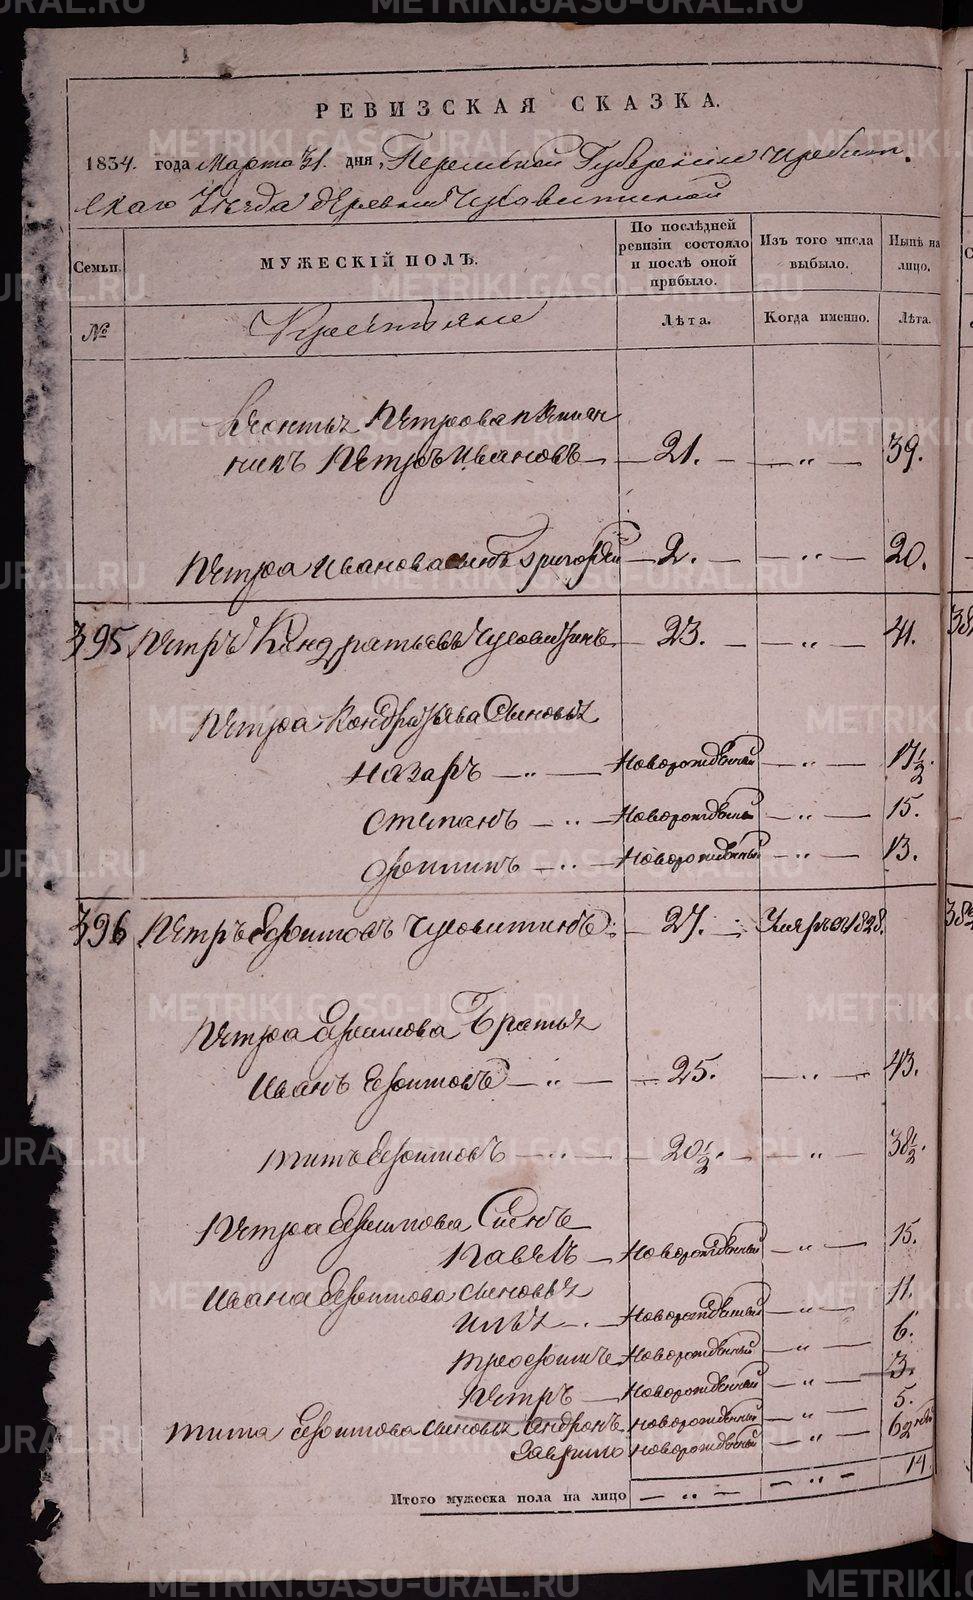 METRIKI.GASO-URAL.RU
РЕВИЗСКАЯ СКАЗКА.
1834. года Марта 31. дня, Пермской Губернии Ирбит
скаго Уѣзда деревни Чусовитиной
Семьи. МУЖЕСКІЙ ПОЛЪ. По послѣдней ревизіи состояло и послѣ оной прибыло. Изъ того числа выбыло. Нынѣ на лицо.
№ Крестьяне Лѣта. Когда именно. Лѣта.
Леонтья Петрова племян
никъ Петръ Ивановъ — 21. — — „ — 39.
Петра Иванова сынъ Григорей — 2. — — „ — 20.
395 Петръ Кондратьевъ Чусовитинъ — 23. — „ — 41.
Петра Кондратьева Сыновья
Назаръ — „ — Новорожденный — „ — 17½.
Степанъ — „ — Новорожденный — „ — 15.
Филипъ — „ — Новорожденный — „ — 13.
396 Петръ Ефимовъ Чусовитинъ — 27. Умеръ въ 1828.
Петра Ефимова Братья
Иванъ Ефимовъ — „ — 25. — „ — 43.
Титъ Ефимовъ — „ — 20½. — „ — 38½.
Петра Ефимова Сынъ
Павелъ — Новорожденный — „ — 15.
Ивана Ефимова сыновья
Илья — Новорожденный — „ — 11.
Трофимъ Новорожденный — „ — 6.
Петръ — Новорожденный — „ — 3.
Тита Ефимова сыновья Андронъ Новорожденный — „ — 5.
Гаврило Новорожденный — „ — 62 нед
Итого мужеска пола на лицо — „ — — „ — 14